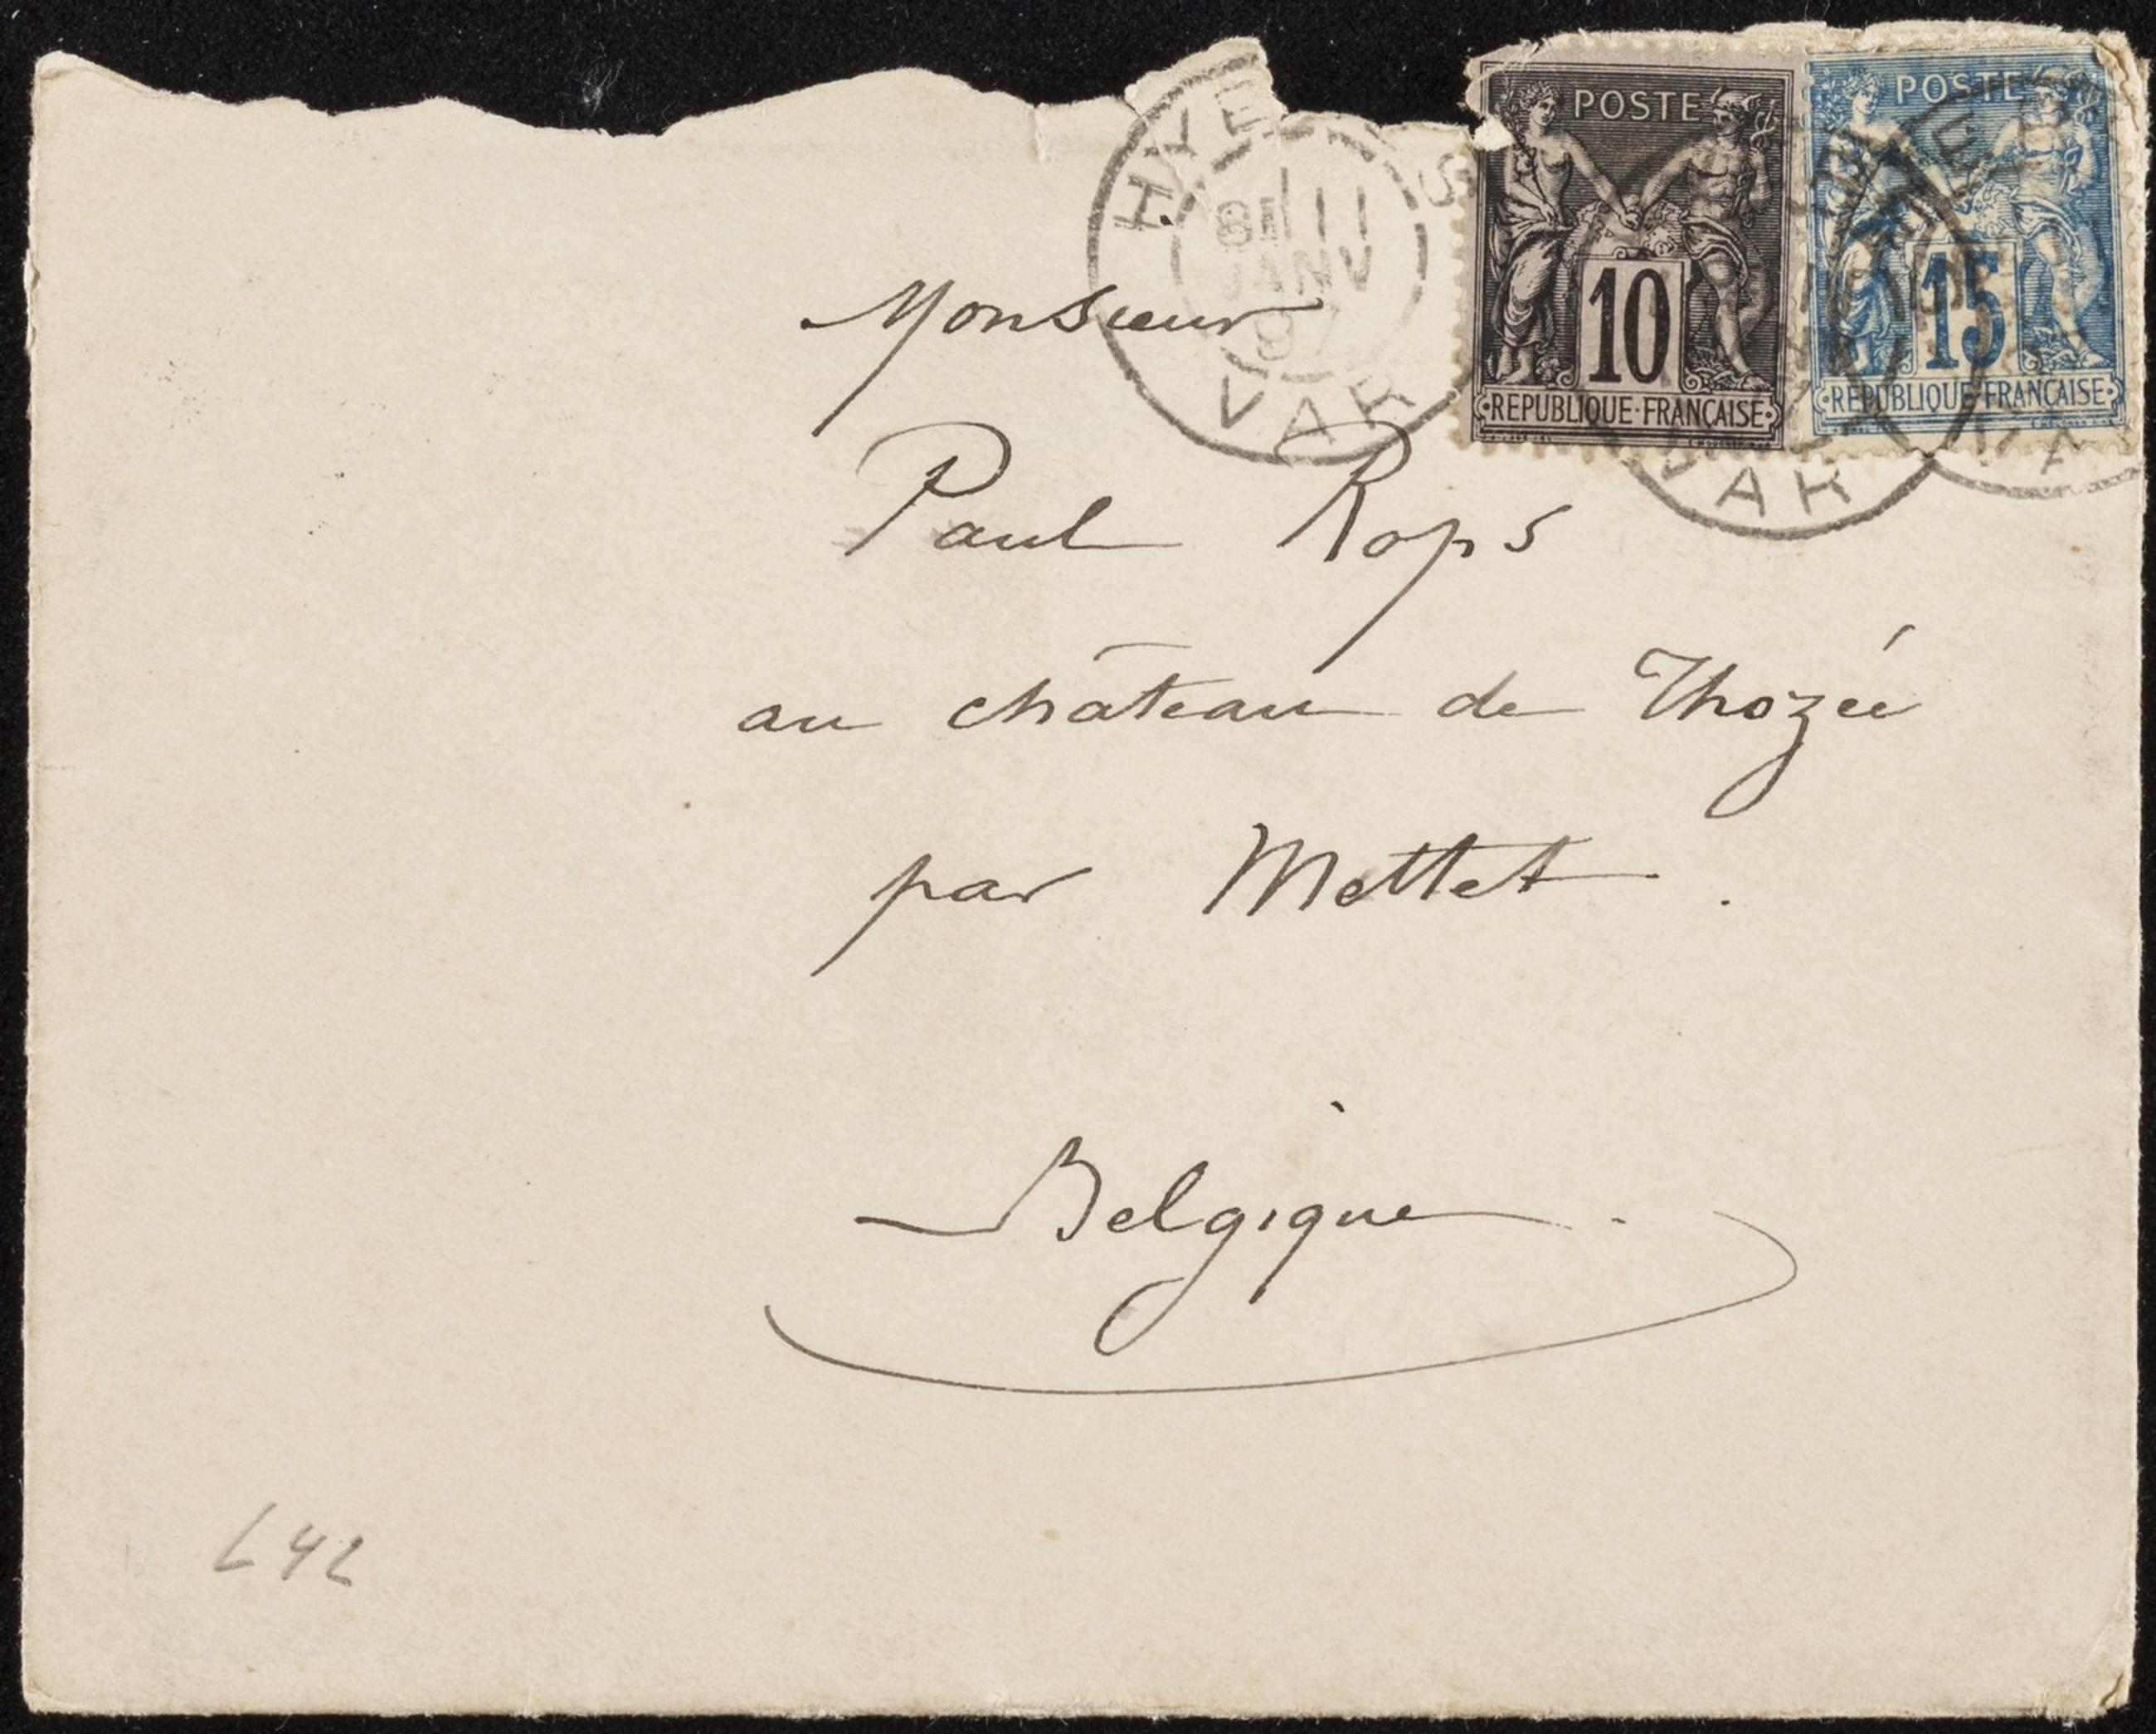 POSTE
10
REPUBLIQUE·FRANÇAISE
POSTE
15
REPUBLIQUE FRANÇAISE
11
JANV
97
VAR
VAR
Monsieur
Paul Rops
au château de Thozée
par Mettet.
Belgique.
L42